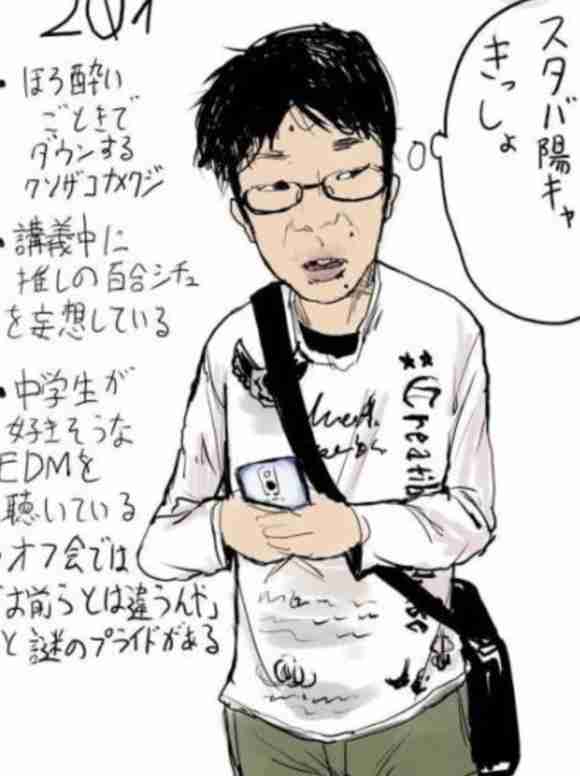 スタバ陽キャ
きっしょ
・ほろ酔い
ごときで
ダウンする
クソザコナメクジ
・講義中に
推しの百合シチュ
を妄想している
・中学生が
好きそうな
EDMを
聴いている
・オフ会では
「お前らとは違うんや」
と謎のプライドがある
**Creatib